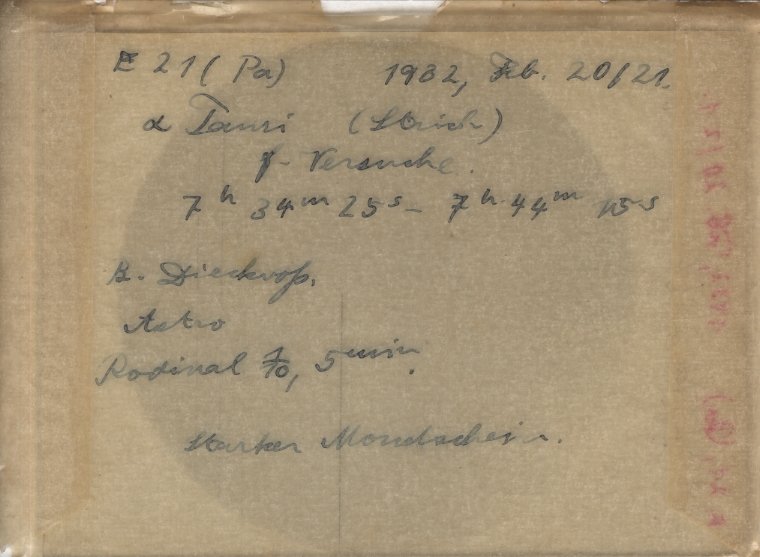 E 21 (Pa) 1932, Feb. 20/21.
α Tauri (Strich)
f- Versuche.
7 h 34 m 25 s - 7 h 44 m 15 s
B. Dieckvoß.
Astro
Rodinal 1/10, 5 min.
Starker Mondschein.